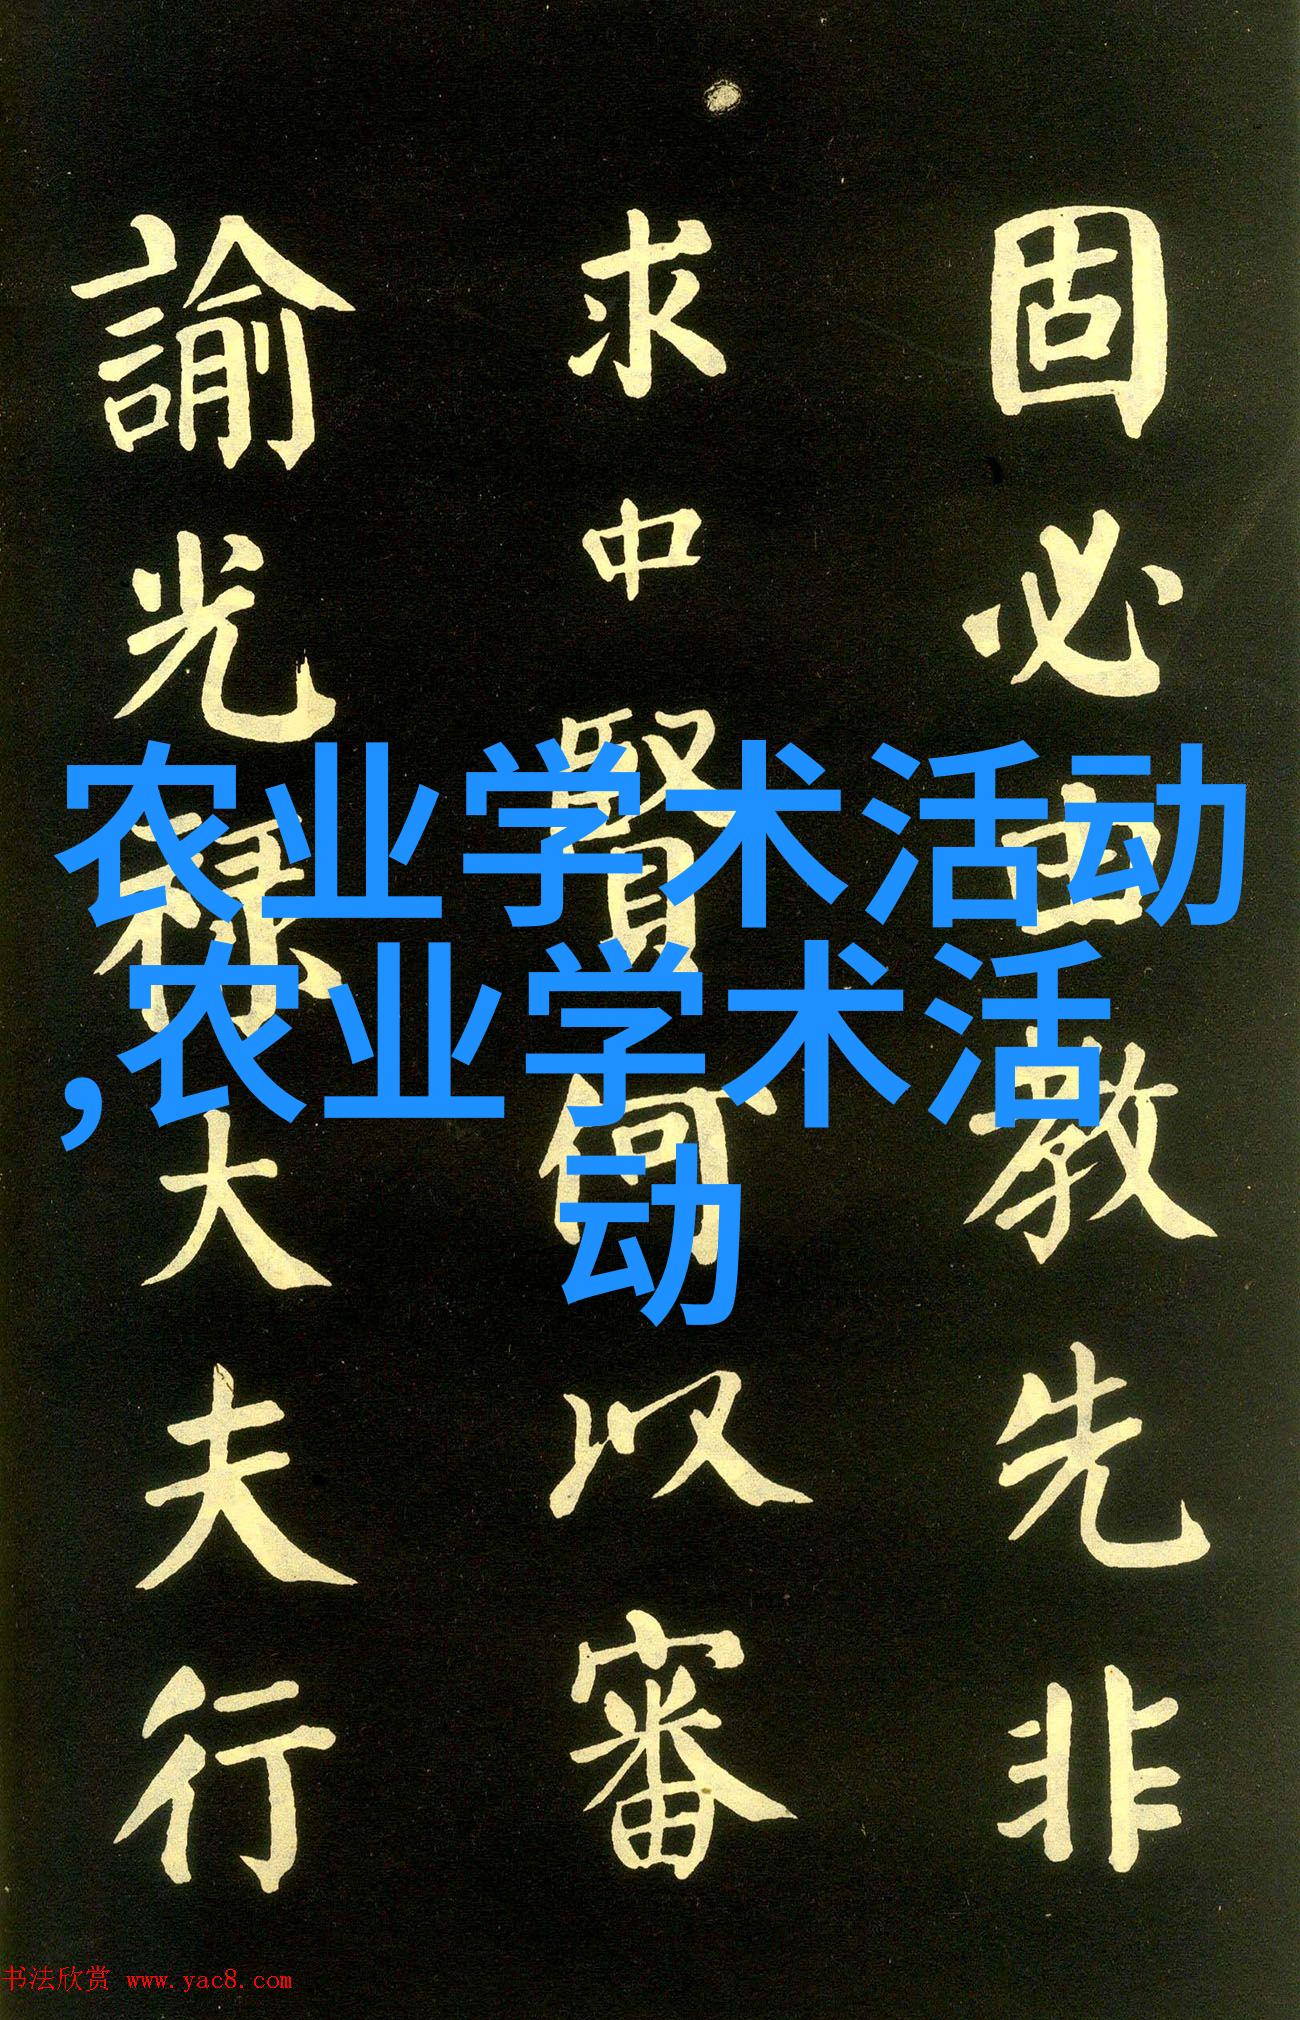 固必由教先非
求中賢何以審
諭光祿大夫行
农业学术活动
,农业学术活
动
书法欣赏 www.yac8.com